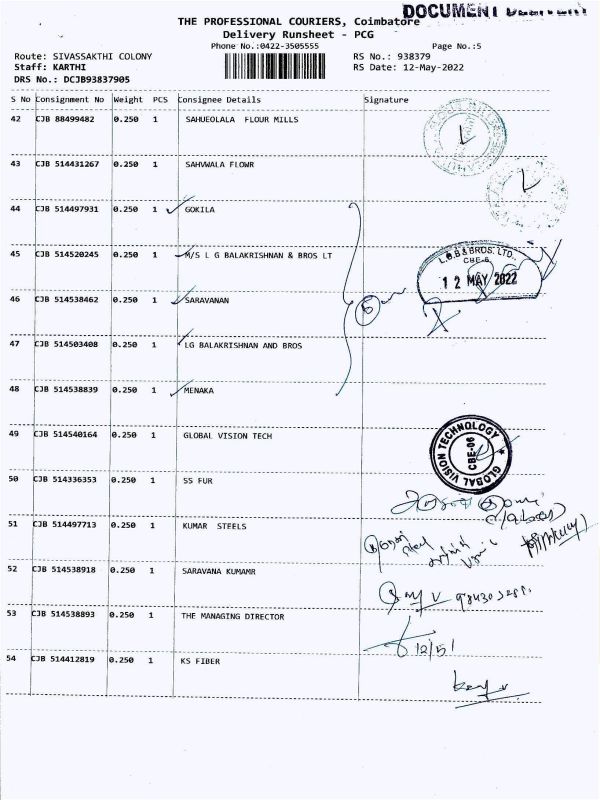 THE PROFESSIONAL COURIERS, Coimbatore
DOCUMENT DELIVERY
Delivery Runsheet - PCG
Phone No.:0422-3505555
Page No.:5
Route: SIVASSAKTHI COLONY
RS No.: 938379
Staff: KARTHI
RS Date: 12-May-2022
DRS No.: DCJB93837905
S No Consignment No Weight PCS Consignee Details Signature
42 CJB 88499482 0.250 1 SAHUEOLALA FLOUR MILLS
43 CJB 514431267 0.250 1 SAHVWALA FLOWR
44 CJB 514497931 0.250 1 GOKILA
45 CJB 514520245 0.250 1 M/S L G BALAKRISHNAN & BROS LT
L.G.B & BROS. LTD.,
CBE-6.
12 MAY 2022
46 CJB 514538462 0.250 1 SARAVANAN
47 CJB 514503408 0.250 1 LG BALAKRISHNAN AND BROS
48 CJB 514538839 0.250 1 MENAKA
49 CJB 514540164 0.250 1 GLOBAL VISION TECH
GLOBAL VISION TECHNOLOGY
CBE-06
50 CJB 514336353 0.250 1 SS FUR
51 CJB 514497713 0.250 1 KUMAR STEELS
52 CJB 514538918 0.250 1 SARAVANA KUMAMR
53 CJB 514538893 0.250 1 THE MANAGING DIRECTOR
12/5/
54 CJB 514412819 0.250 1 KS FIBER